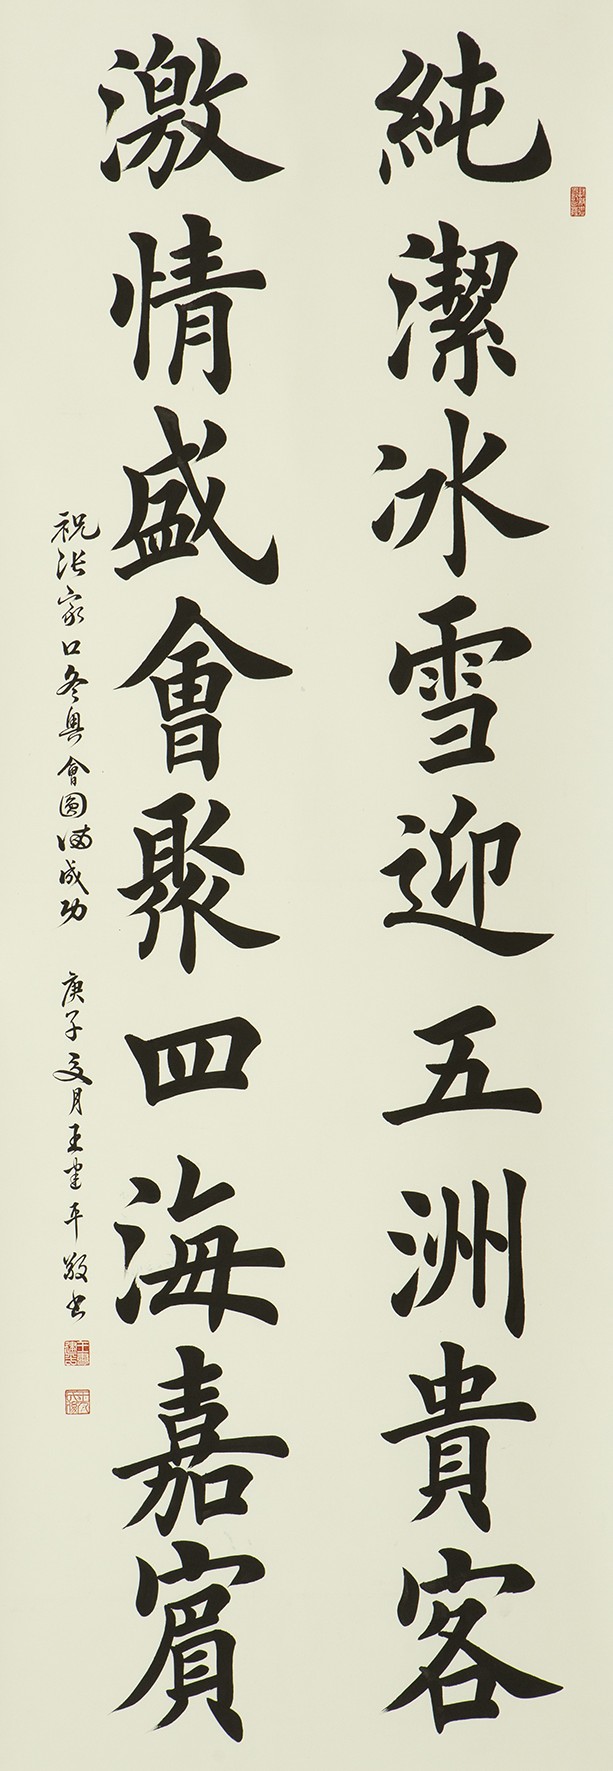 純潔冰雪迎五洲貴客
激情盛會聚四海嘉賓
祝张家口冬奥會圆满成功
庚子夏月王建平敬书